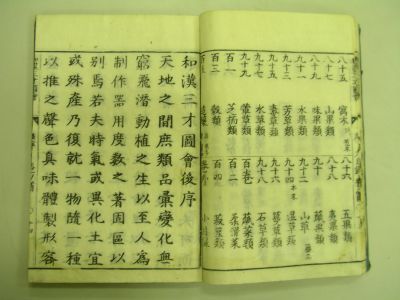 八十五 寓木類 八十六 五果類
八十七 山果類 八十八 夷果類
八十九 味果類 九十 蓏果類
九十一 水果類 九十二 山草
九十三 芳草類 九十四 湿草類
九十五 毒草類 九十六 蔓草類
九十七 水草類 九十八 石草類
九十九 葷草類
百一 芝栭類 百二 柔滑菜
百三 穀類 百四 菽豆類
和漢三才圖會後序
天地之間庶類品彙變化無
窮飛潜動植之生以至人為
制作器用度数之著固區以
別焉若夫時氣或異化土宜
或殊産乃復就一物隨一種
以推之聲色臭味體製形容